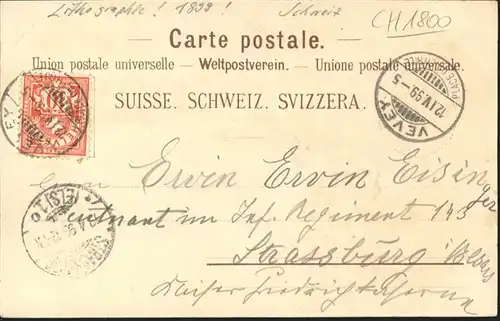 Lithographie! 1899! Schweiz CH1800
Carte postale.
Union postale universelle. — Weltpostverein. — Unione postale universale.
SUISSE. SCHWEIZ. SVIZZERA.
VEVEY
12.IV.99.-5
Erwin Erwin Eisinger
Leutnant im Inf. Regiment 143
Strassburg i/Elsass
Kaiser Friedrichkaserne